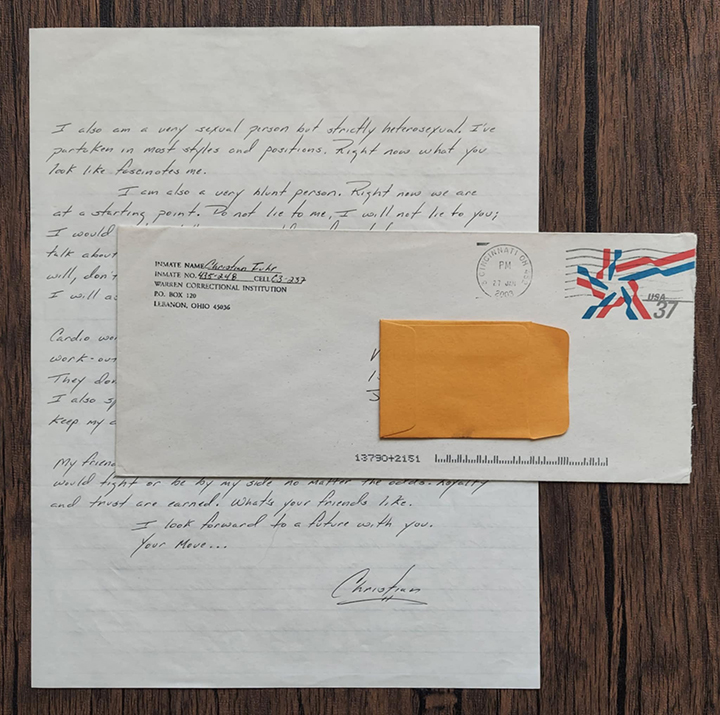 I also am a very sexual person but strictly heterosexual. I've
partaken in most styles and positions. Right now what you
look like fascinates me.
I am also a very blunt person. Right now we are
at a starting point. Do not lie to me, I will not lie to you;
I would
talk about
will, don't
I will
Cardio
work-out
They don
I also
Keep my
My friend
would fight or be by my side no matter the odds. Loyalty
and trust are earned. What's your friends like.
I look forward to a future with you.
Your Move...
Christian
INMATE NAME Christian Fuhr
INMATE NO. 435-248 CELL C3-237
WARREN CORRECTIONAL INSTITUTION
P.O. BOX 120
LEBANON, OHIO 45036
CINCINNATI OH 452
PM
27 JAN
2003
USA
37
13790+2151